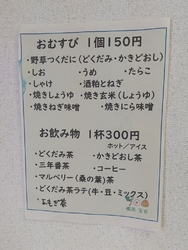 おむすび 1個150円
・野草つくだに(どくだみ・かきどおし)
・しお ・うめ ・たらこ
・しゃけ ・酒粕とねぎ
・焼きしょうゆ ・焼き玄米(しょうゆ)
・焼きねぎ味噌 ・焼きにら味噌
お飲み物 1杯300円
ホット/アイス
・どくだみ茶 ・かきどおし茶
・三年番茶 ・コーヒー
・マルベリー(桑の葉)茶
・どくだみ茶ラテ(牛・豆・ミックス)
・よもぎ茶